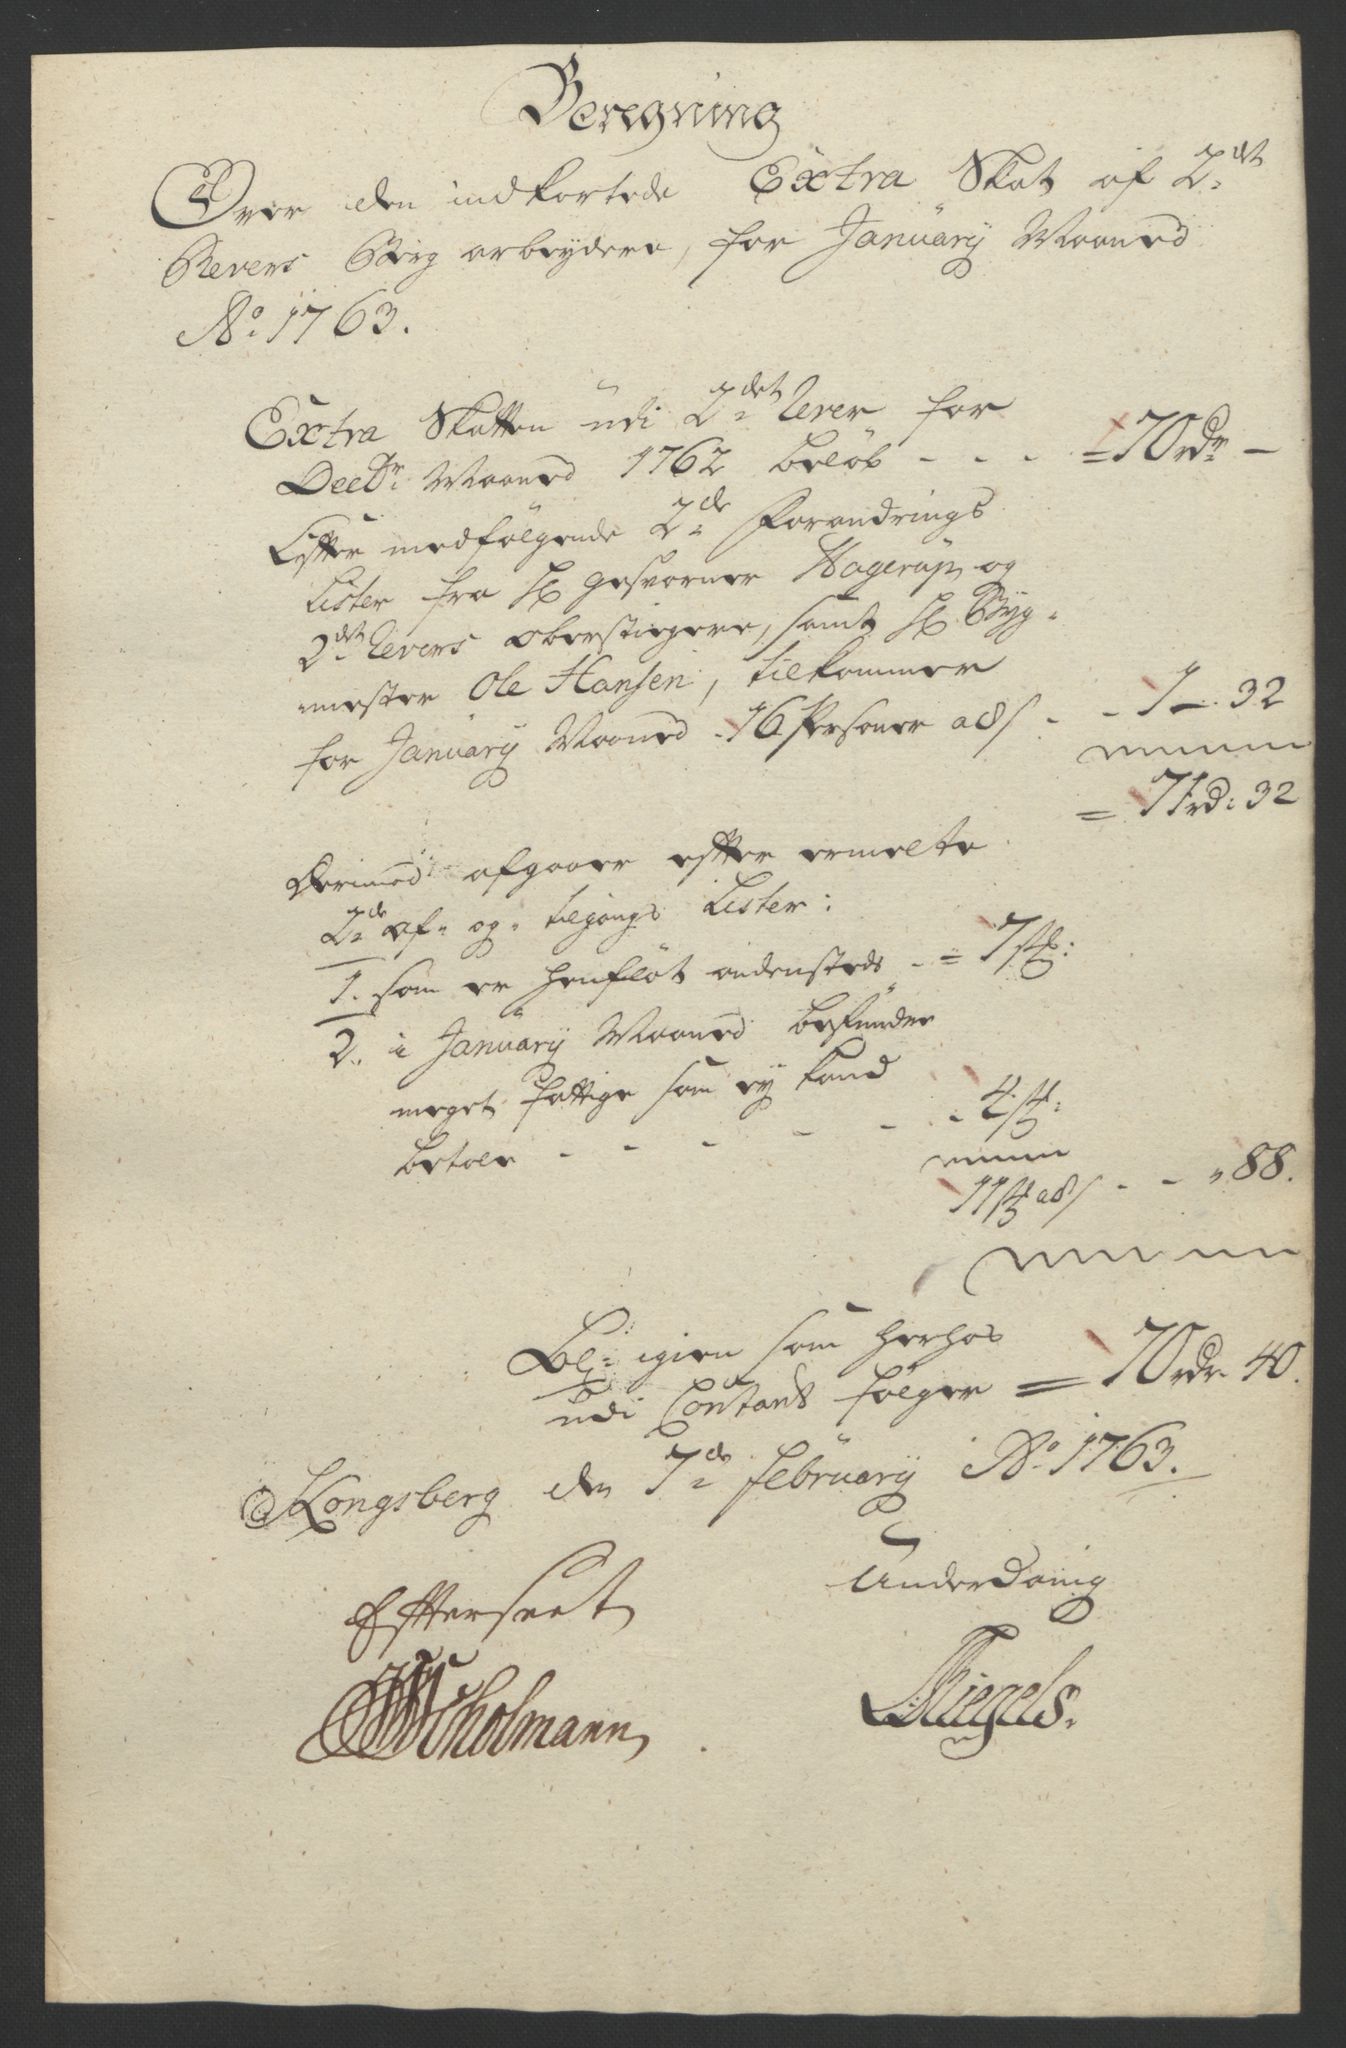 Beregning
Over den indkortede Extra Skat af 2.det
Revers Berg arbeydere, for January Maaned
Ao. 1763.
Extra Skatten udi 2.det Rever for
Decbr: Maaned 1762 beløb - - - = 70 rdr -
Efter medfølgende 2.de Forandrings
Lister fra Hr Gesvorner Hagerup og
2.det Revers Oberstiegere, samt Hr Byg-
mester Ole Hansen, tilkommer
for January Maaned .16 Personer a 8 s - - 1 „ 32
= 71 rd: 32
Derimod afgaaer efter ermelte
2.de af- og- tilgangs Lister:
1. som er henfløt andensteds - = 7 st:
2. i January Maaned befunder
meget fattige som ey kand
betale - - - - - - 4 st:
11 st a 8 s - - „ 88.
Bl: igien som herhos
udi Contant følger = 70 rdr 40.
Kongsberg den 7.de February Ao. 1763.
Efterseet
Underdanig
Tholmann
Riegels.